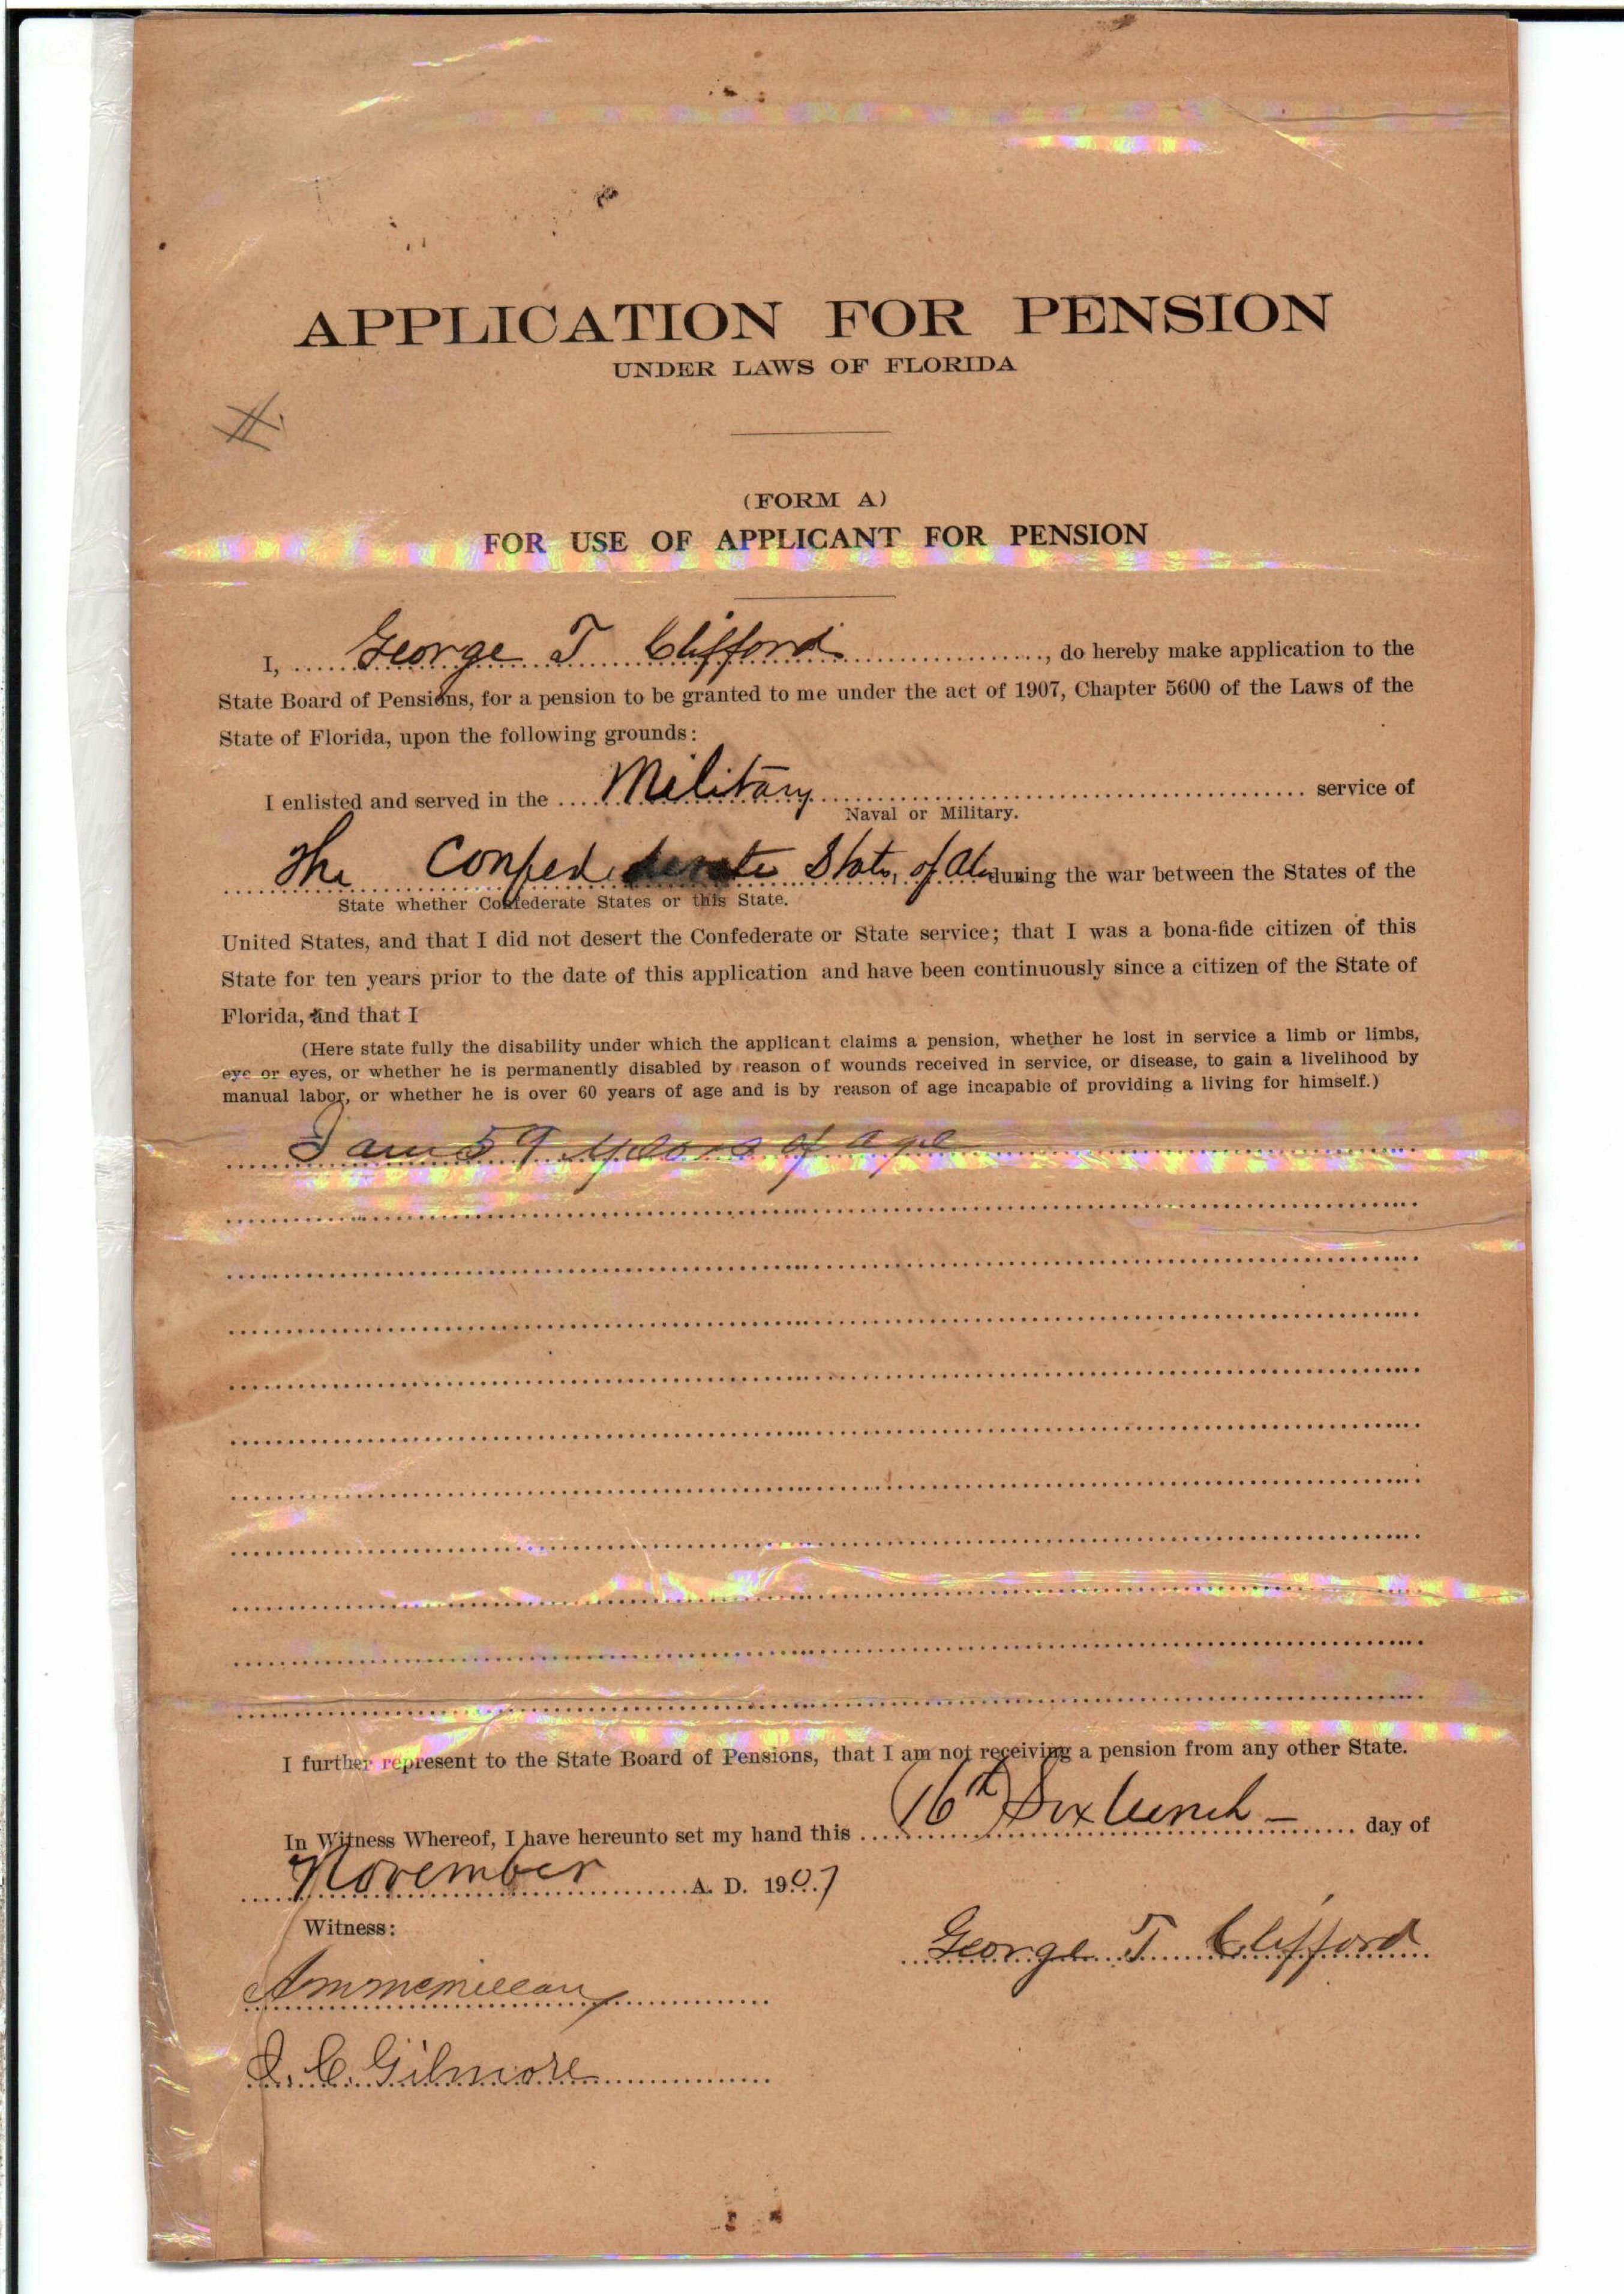 APPLICATION FOR PENSION
UNDER LAWS OF FLORIDA
(FORM A)
FOR USE OF APPLICANT FOR PENSION
I, George T Clifford, do hereby make application to the
State Board of Pensions, for a pension to be granted to me under the act of 1907, Chapter 5600 of the Laws of the
State of Florida, upon the following grounds:
I enlisted and served in the Military service of
Naval or Military.
The Confederate States of during the war between the States of the
State whether Confederate States or this State.
United States, and that I did not desert the Confederate or State service; that I was a bona-fide citizen of this
State for ten years prior to the date of this application and have been continuously since a citizen of the State of
Florida, and that I
(Here state fully the disability under which the applicant claims a pension, whether he lost in service a limb or limbs,
eye or eyes, or whether he is permanently disabled by reason of wounds received in service, or disease, to gain a livelihood by
manual labor, or whether he is over 60 years of age and is by reason of age incapable of providing a living for himself.)
I am 59 years of age
I further represent to the State Board of Pensions, that I am not receiving a pension from any other State.
In Witness Whereof, I have hereunto set my hand this 16th day of
November A. D. 1907
Witness:
George T Clifford
A m mcmillan
J. C. Gilmore